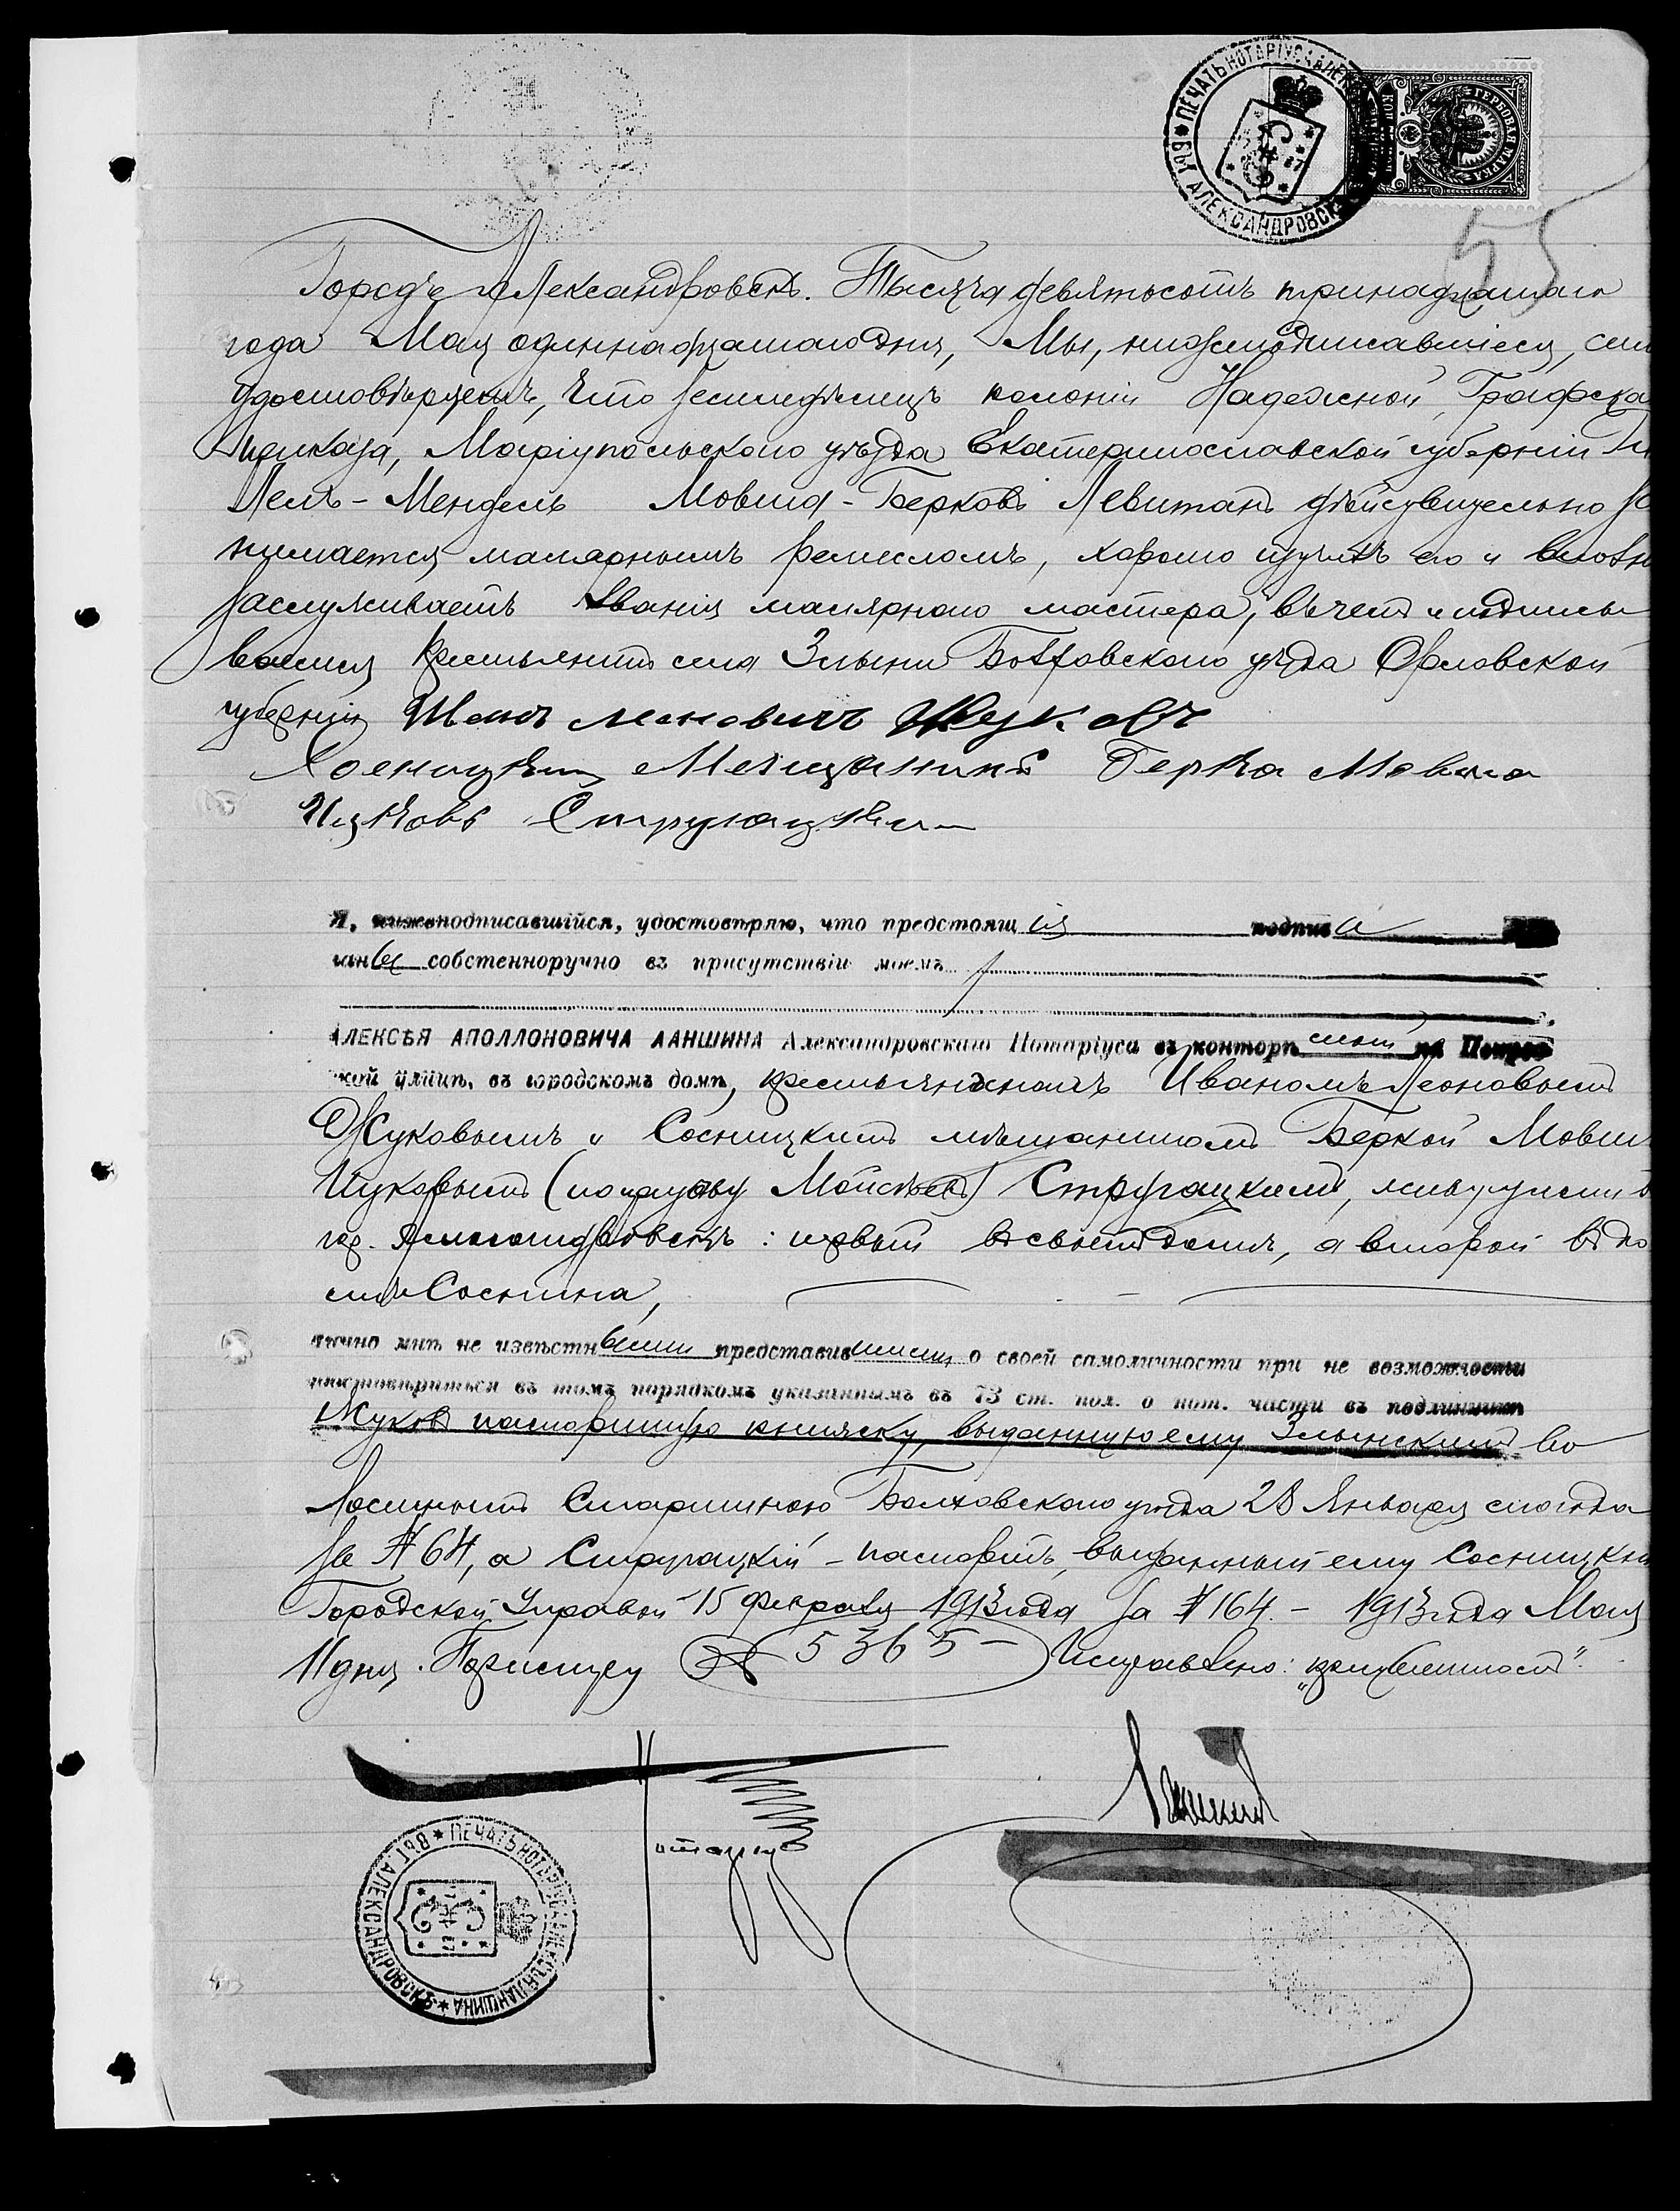 ПЕЧАТЬ НОТАРІУСА
ВЪ Г. АЛЕКСАНДРОВСКѢ
ГЕРБОВАЯ МАРКА
55
Городъ Александровскъ. Тысяча девятьсотъ тринадцатаго
года Мая одиннадцатаго дня, Мы, нижеподписавшіеся, сим
удостовѣряемъ, что земледѣлецъ колоніи Надежной, Графска
приказа, Маріупольскаго уѣзда Екатеринославской губерніи
Мендель Мовша-Берковъ Левитанъ дѣйствительно за
нимается малярнымъ ремесломъ, хорошо изучилъ его и вполн
заслуживаетъ званія малярнаго мастера, въ чемъ и подписы
ваемся крестьянинъ села Злыни Болховскаго уѣзда Орловской
губерніи Иванъ леновичъ Жуковъ
Сосницкій Мещанинъ Берка Мовша
Ицковъ Стругацкій
Я, нижеподписавшійся, удостовѣряю, что предстоящія подписи
саны собственноручно въ присутствіи моемъ
АЛЕКСѢЯ АПОЛЛОНОВИЧА ЛАНШИНА Александровскаго Нотаріуса въ конторѣ моей на Покров
ской улицѣ, въ городскомъ домѣ, крестьяниномъ Иваномъ Леоновымъ
Жуковымъ и Сосницкимъ мѣщаниномъ Беркой Мовш
Ицковымъ Стругацкимъ, живущими в
гор. Александровскѣ: первый въ своемъ домѣ, а второй въ до
мѣ Соснина,
лично мнѣ не извѣстными представившими о своей самоличности при не возможности
удостовѣриться въ томъ порядкомъ указаннымъ въ 73 ст. пол. о нот. части въ подлинникѣ
Жуковъ паспортную книжку, выданную ему Злынскимъ Во
лостнымъ Старшиною Болховскаго уѣзда 28 Января сего года
за № 64, а Стругацкій - паспортъ, выданный ему Сосницкой
Городской Управой 15 Февраля 1913 года за № 164. - 1913 года Мая
11 дня. По реестру № 5365 - Исправлено:
Нотаріусъ
Ланшинъ
ПЕЧАТЬ НОТАРІУСА АЛЕКСѢЯ ЛАНШИНА
ВЪ Г. АЛЕКСАНДРОВСКѢ